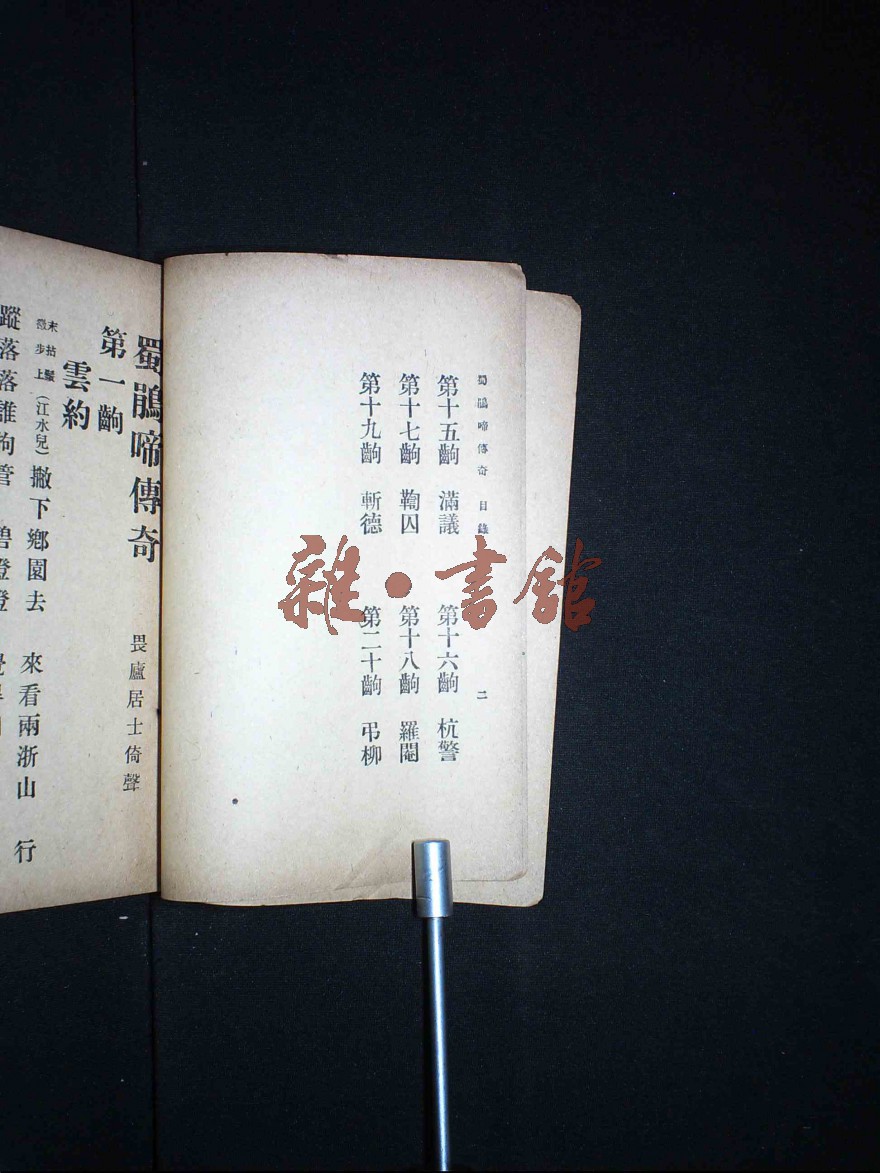 蜀鵑啼傳奇 目錄 二
第十五齣 滿議 第十六齣 杭警
第十七齣 鞫囚 第十八齣 羅閹
第十九齣 斬德 第二十齣 弔柳
雜·書館
蜀鵑啼傳奇
畏廬居士倚聲
第一齣
雲約
步上（江水兒）撇下鄉園去 來看兩浙山 行
蹤落落誰拘管